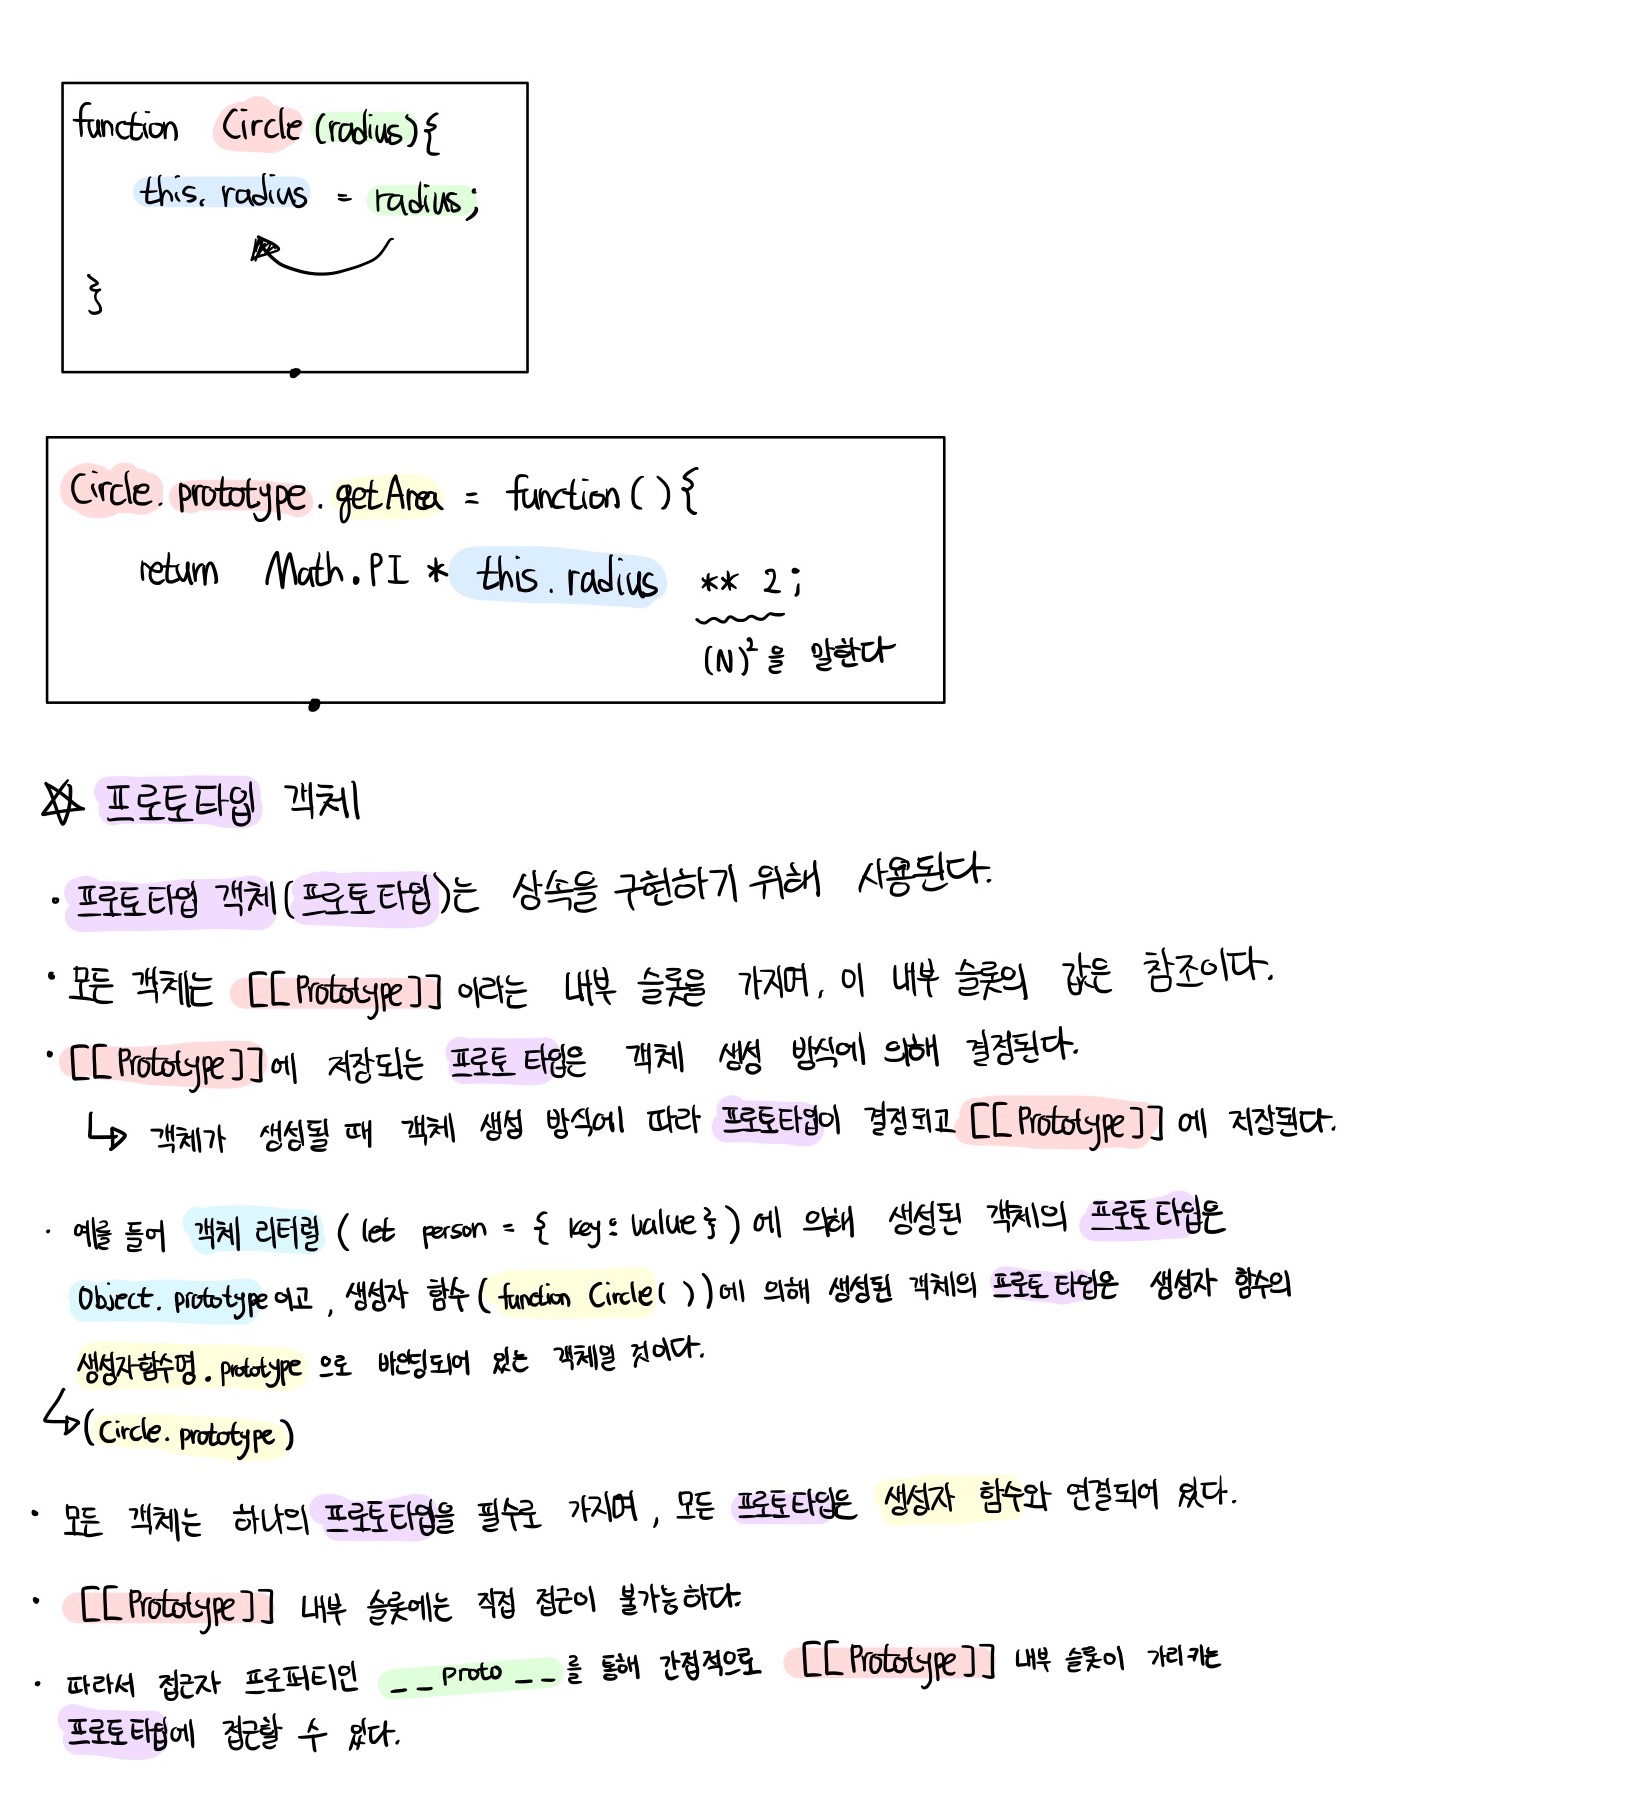 function Circle (radius){
this.radius = radius;
}
Circle.prototype.getArea = function(){
return Math.PI * this.radius ** 2;
(N)²을 말한다
☆ 프로토타입 객체
· 프로토타입 객체(프로토타입)는 상속을 구현하기 위해 사용된다.
· 모든 객체는 [[Prototype]] 이라는 내부 슬롯을 가지며, 이 내부 슬롯의 값은 참조이다.
· [[Prototype]]에 저장되는 프로토타입은 객체 생성 방식에 의해 결정된다.
↳ 객체가 생성될 때 객체 생성 방식에 따라 프로토타입이 결정되고 [[Prototype]]에 저장된다.
· 예를 들어 객체 리터럴 (let person = { key: value })에 의해 생성된 객체의 프로토타입은
Object.prototype이고, 생성자 함수(function Circle())에 의해 생성된 객체의 프로토타입은 생성자 함수의
생성자함수명.prototype 으로 바인딩되어 있는 객체일 것이다.
↳ (Circle.prototype)
· 모든 객체는 하나의 프로토타입을 필수로 가지며, 모든 프로토타입은 생성자 함수와 연결되어 있다.
· [[Prototype]] 내부 슬롯에는 직접 접근이 불가능하다.
· 따라서 접근자 프로퍼티인 __proto__를 통해 간접적으로 [[Prototype]] 내부 슬롯이 가리키는
프로토타입에 접근할 수 있다.